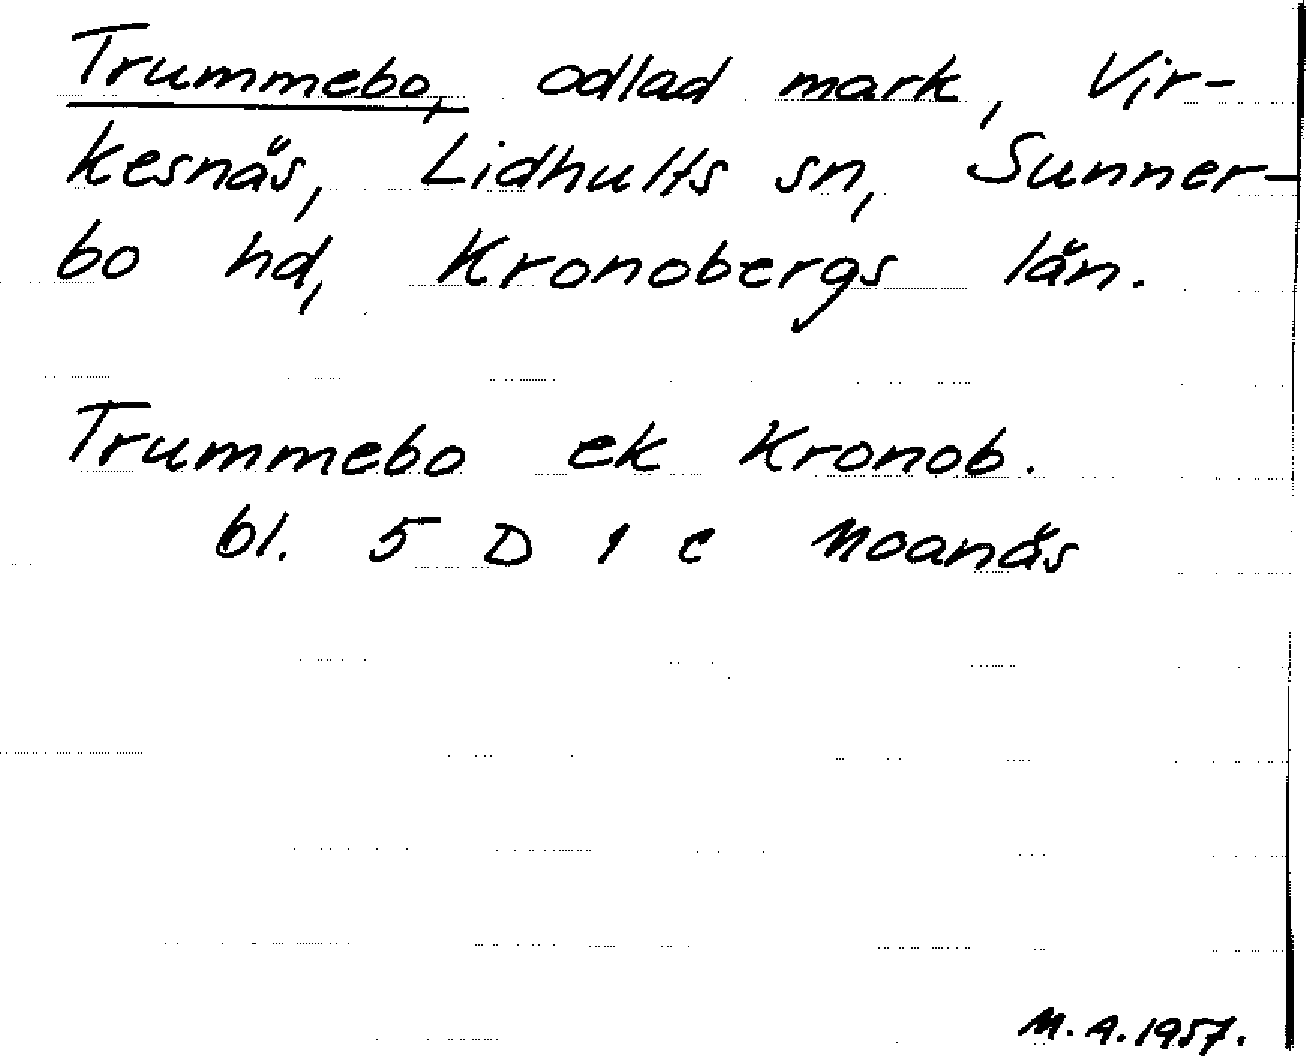 Trummebo, odlad mark, Vir-
kesnäs, Lidhults sn, Sunner-
bo hd, Kronobergs län.
Trummebo ek Kronob.
bl. 5 D 1 c Moanäs
M. A. 1957.